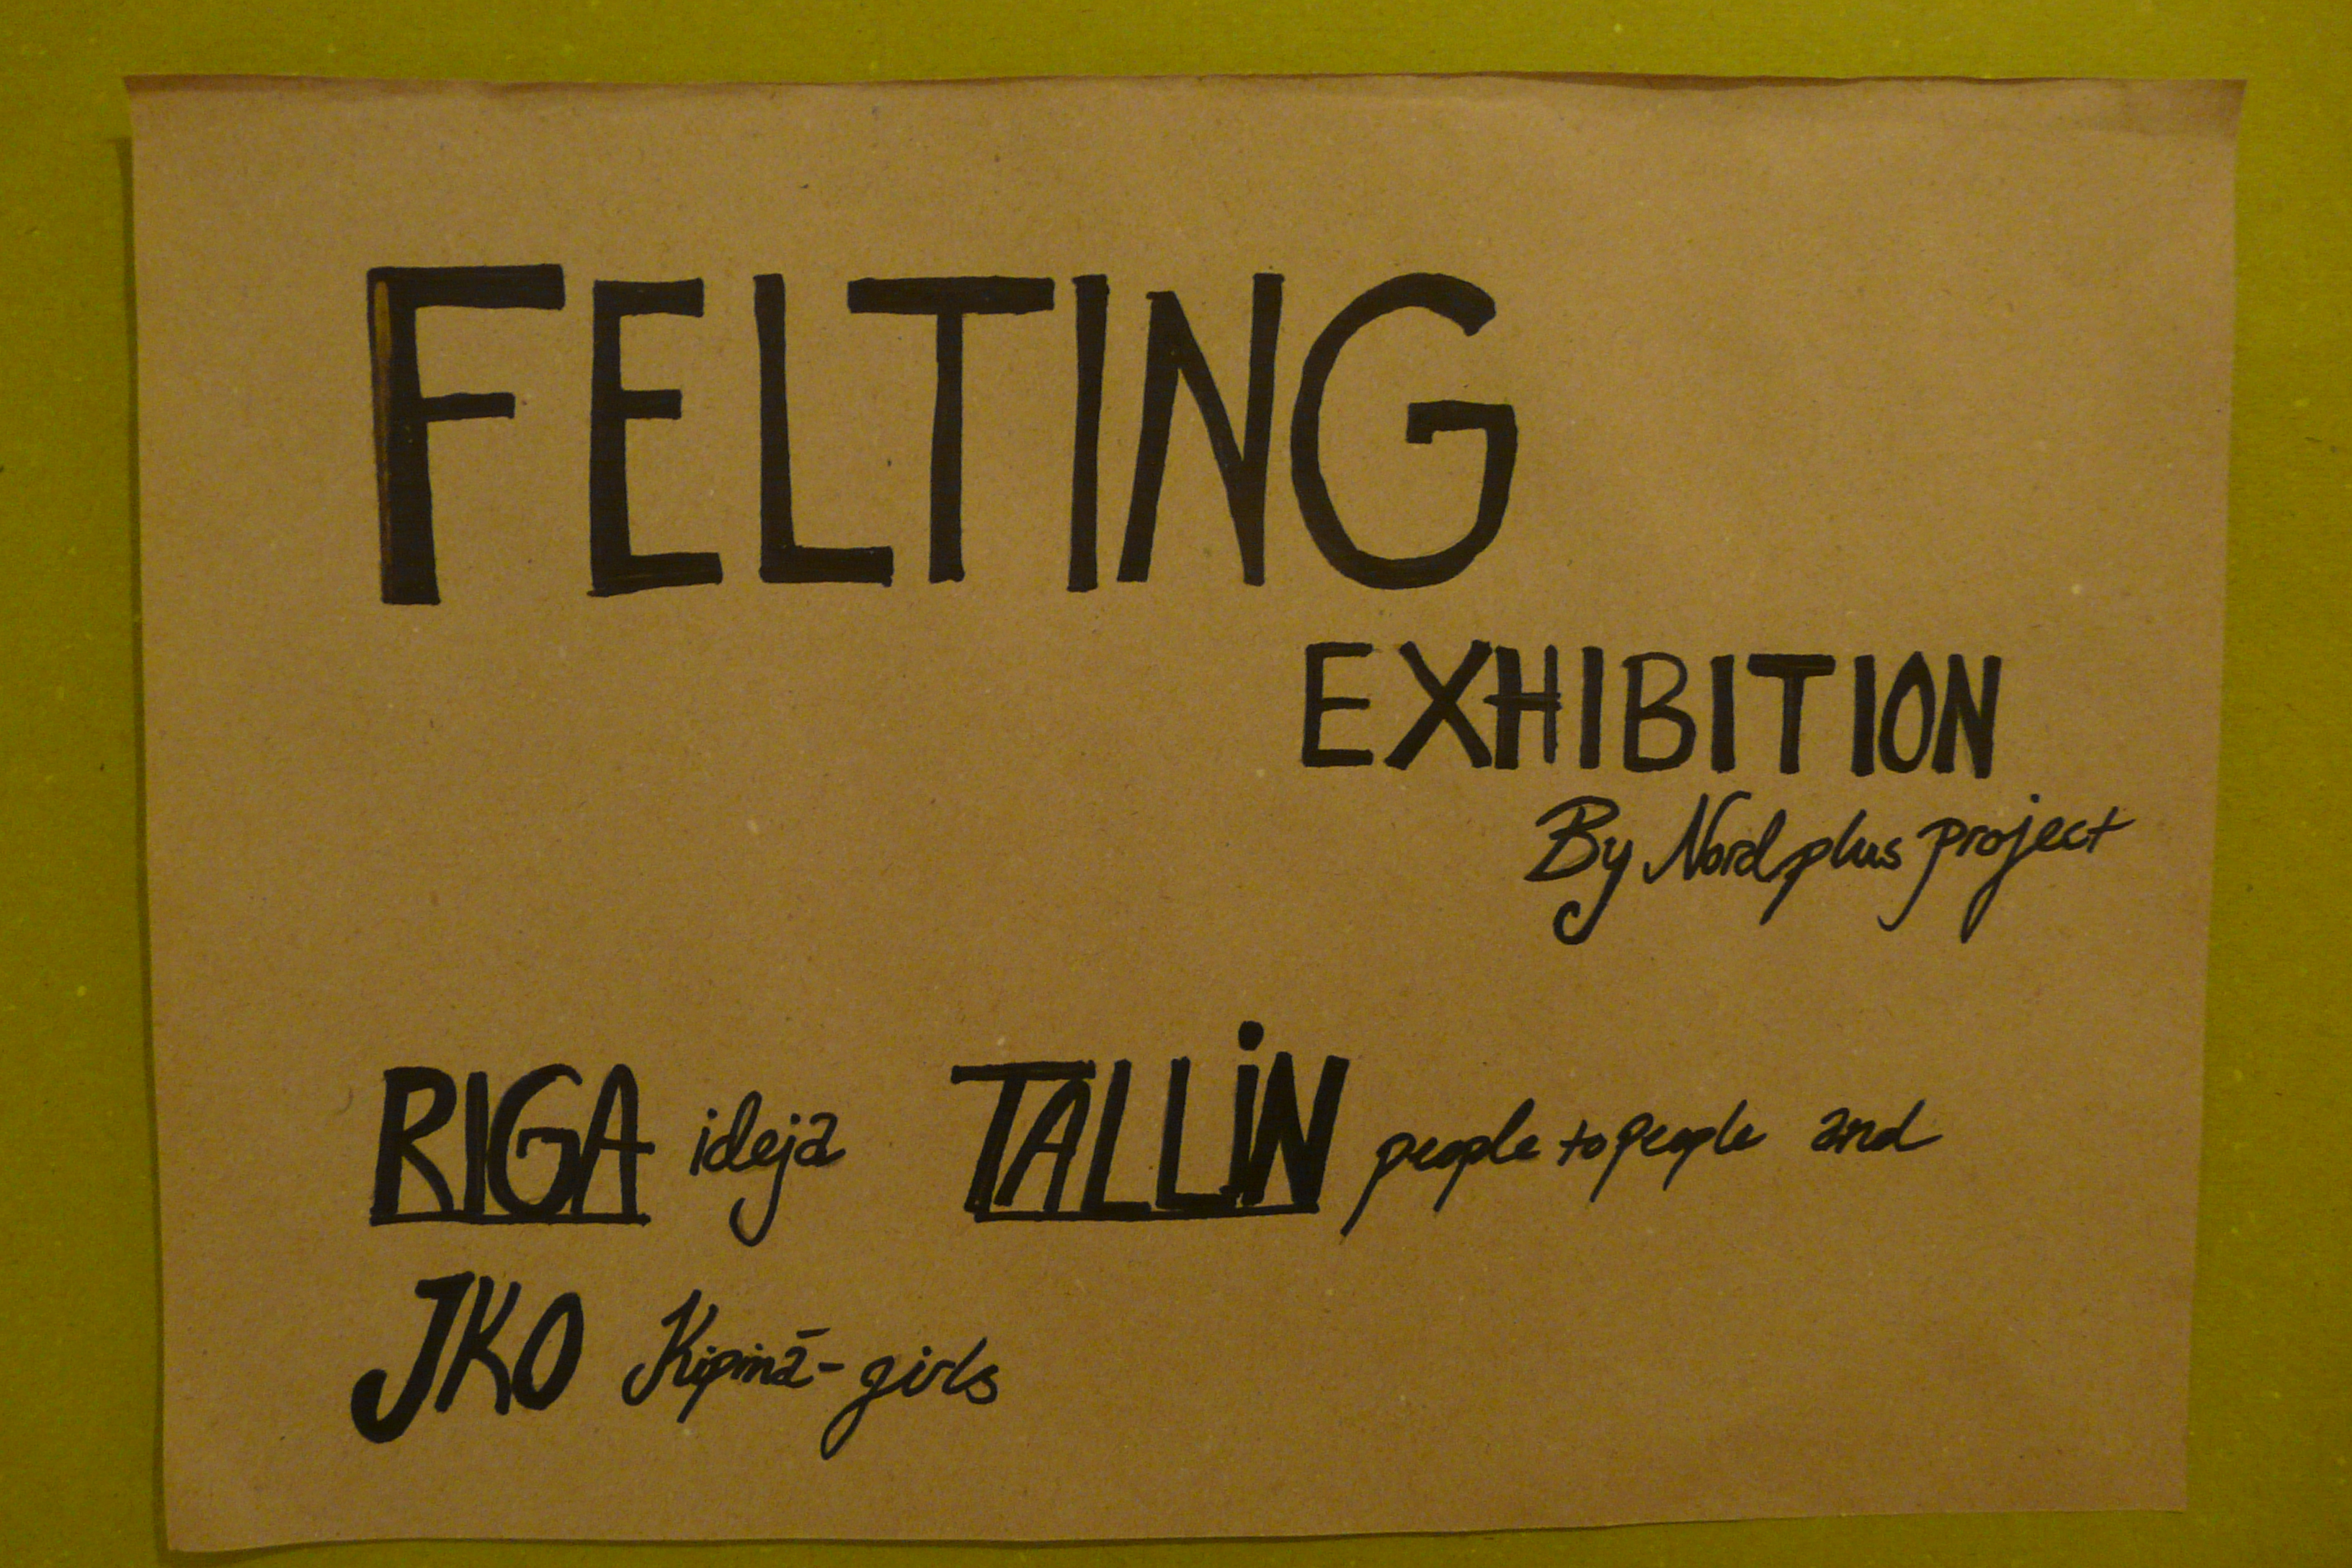 FELTING
EXHIBITION
By Nordplus project
RIGA ideja TALLiN people to people and
JKO Kipinā-girls